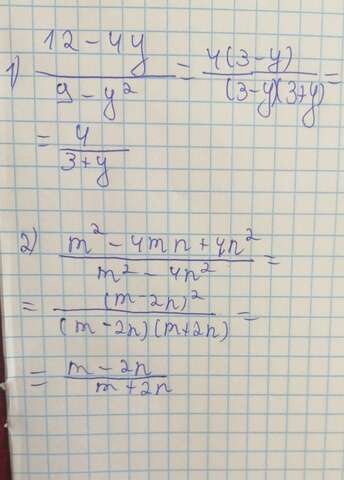 1) (12 - 4y)/(9 - y²) = 4(3 - y)/((3 - y)(3 + y)) =
= 4/(3 + y)
2) (m² - 4mn + 4n²)/(m² - 4n²) =
= (m - 2n)²/((m - 2n)(m + 2n)) =
= (m - 2n)/(m + 2n)